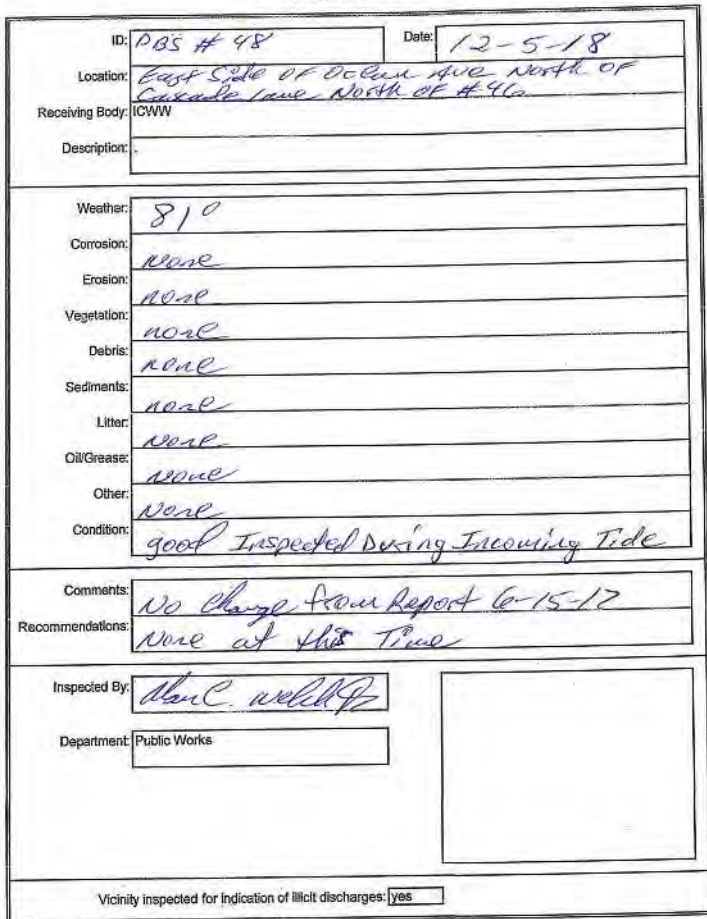 ID: PBS # 48
Date: 12-5-18
Location: East Side OF Ocean Ave North OF
Cascade Lane North OF # 46
Receiving Body: ICWW
Description: .
Weather: 81°
Corrosion: None
Erosion: none
Vegetation: none
Debris: none
Sediments: none
Litter: None
Oil/Grease: None
Other: None
Condition: good Inspected During Incoming Tide
Comments: No Change from Report 6-15-17
Recommendations: None at this Time
Inspected By: Alan C.
Department: Public Works
Vicinity inspected for indication of illicit discharges: yes